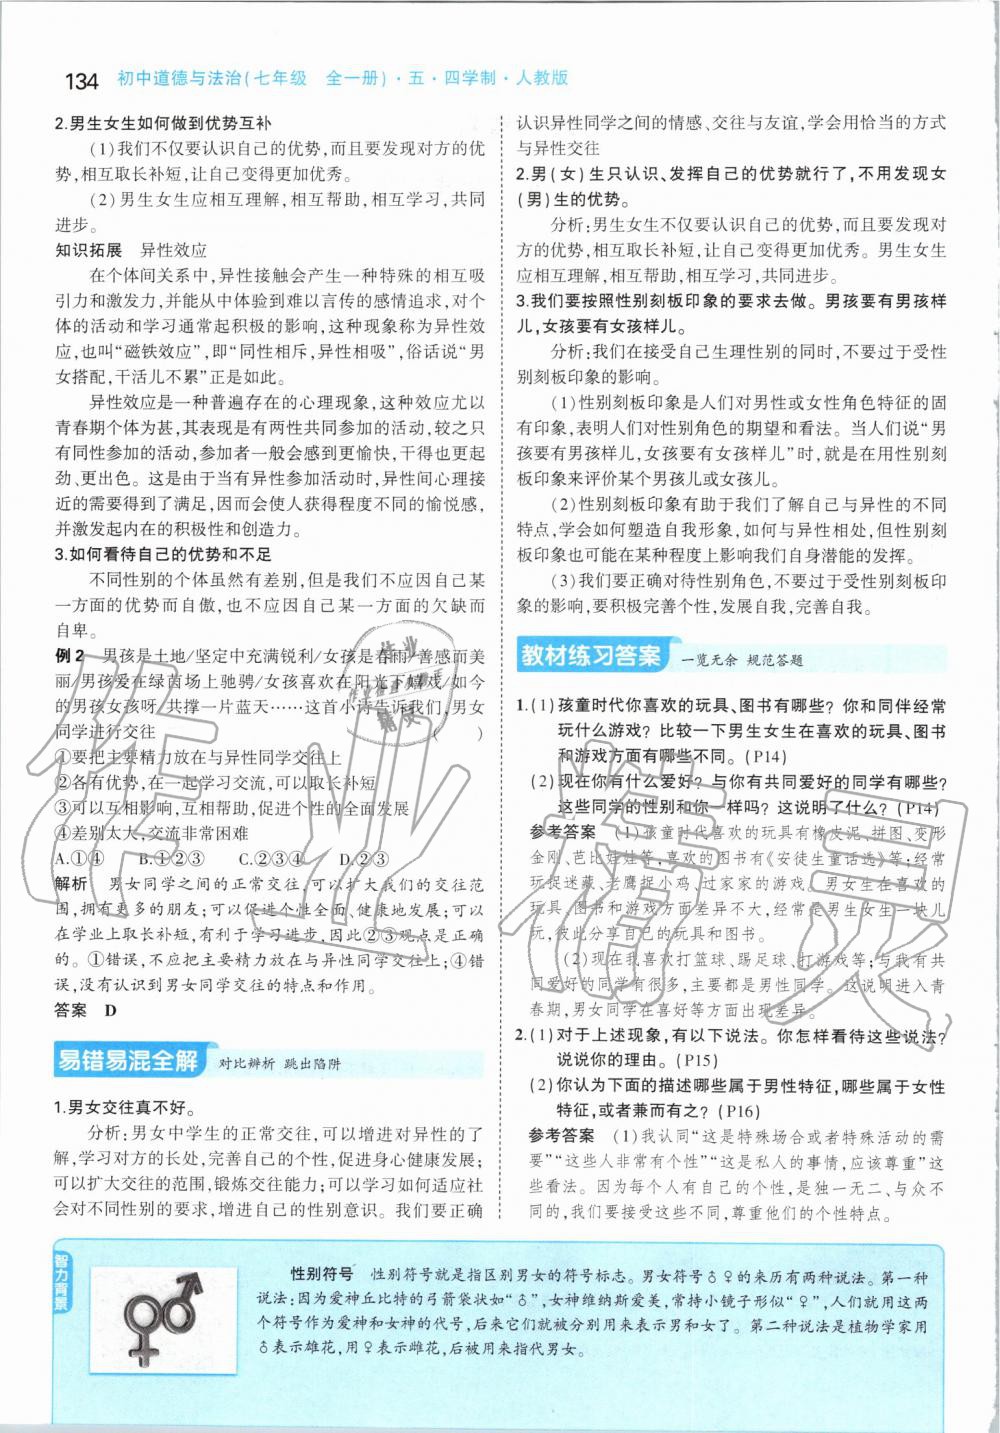 134 初中道德与法治(七年级 全一册)·五·四学制·人教版
2.男生女生如何做到优势互补
(1)我们不仅要认识自己的优势,而且要发现对方的优
势,相互取长补短,让自己变得更加优秀。
(2)男生女生应相互理解,相互帮助,相互学习,共同
进步。
知识拓展 异性效应
在个体间关系中,异性接触会产生一种特殊的相互吸
引力和激发力,并能从中体验到难以言传的感情追求,对个
体的活动和学习通常起积极的影响,这种现象称为异性效
应,也叫“磁铁效应”,即“同性相斥,异性相吸”,俗话说“男
女搭配,干活儿不累”正是如此。
异性效应是一种普遍存在的心理现象,这种效应尤以
青春期个体为甚,其表现是有两性共同参加的活动,较之只
有同性参加的活动,参加者一般会感到更愉快,干得也更起
劲、更出色。这是由于当有异性参加活动时,异性间心理接
近的需要得到了满足,因而会使人获得程度不同的愉悦感,
并激发起内在的积极性和创造力。
3.如何看待自己的优势和不足
不同性别的个体虽然有差别,但是我们不应因自己某
一方面的优势而自傲,也不应因自己某一方面的欠缺而
自卑。
例2 男孩是土地/坚定中充满锐利/女孩是春雨/善感而美
丽/男孩爱在绿茵场上驰骋/女孩喜欢在阳光下嬉戏/如今
的男孩女孩呀,共撑一片蓝天……这首小诗告诉我们,男女
同学进行交往 ( )
①要把主要精力放在与异性同学交往上
②各有优势,在一起学习交流,可以取长补短
③可以互相影响,互相帮助,促进个性的全面发展
④差别太大,交流非常困难
A.①④ B.①②③ C.②③④ D.②③
解析 男女同学之间的正常交往,可以扩大我们的交往范
围,拥有更多的朋友;可以促进个性全面、健康地发展;可以
在学业上取长补短,有利于学习进步,因此②③观点是正确
的。①错误,不应把主要精力放在与异性同学交往上;④错
误,没有认识到男女同学交往的特点和作用。
答案 D
易错易混全解 对比辨析 跳出陷阱
1.男女交往真不好。
分析:男女中学生的正常交往,可以增进对异性的了
解,学习对方的长处,完善自己的个性,促进身心健康发展;
可以扩大交往的范围,锻炼交往能力;可以学习如何适应社
会对不同性别的要求,增进自己的性别意识。我们要正确
认识异性同学之间的情感、交往与友谊,学会用恰当的方式
与异性交往
2.男(女)生只认识、发挥自己的优势就行了,不用发现女
(男)生的优势。
分析:男生女生不仅要认识自己的优势,而且要发现对
方的优势,相互取长补短,让自己变得更加优秀。男生女生
应相互理解,相互帮助,相互学习,共同进步。
3.我们要按照性别刻板印象的要求去做。男孩要有男孩样
儿,女孩要有女孩样儿。
分析:我们在接受自己生理性别的同时,不要过于受性
别刻板印象的影响。
(1)性别刻板印象是人们对男性或女性角色特征的固
有印象,表明人们对性别角色的期望和看法。当人们说“男
孩要有男孩样儿,女孩要有女孩样儿”时,就是在用性别刻
板印象来评价某个男孩儿或女孩儿。
(2)性别刻板印象有助于我们了解自己与异性的不同
特点,学会如何塑造自我形象,如何与异性相处,但性别刻
板印象也可能在某种程度上影响我们自身潜能的发挥。
(3)我们要正确对待性别角色,不要过于受性别刻板印
象的影响,要积极完善个性,发展自我,完善自我。
教材练习答案 一览无余 规范答题
1.(1)孩童时代你喜欢的玩具、图书有哪些?你和同伴经常
玩什么游戏?比较一下男生女生在喜欢的玩具、图书
和游戏方面有哪些不同。(P14)
(2)现在你有什么爱好?与你有共同爱好的同学有哪些?
这些同学的性别和你一样吗?这说明了什么?(P14)
参考答案 (1)孩童时代喜欢的玩具有橡皮泥、拼图、变形
金刚、芭比娃娃等;喜欢的图书有《安徒生童话选》等;经常
玩捉迷藏、老鹰捉小鸡、过家家的游戏。男生女生在喜欢的
玩具、图书和游戏方面差异不大,经常是男生女生一块儿
玩,彼此分享自己的玩具和图书。
(2)现在我喜欢打篮球、踢足球、打游戏等;与我有共
同爱好的同学有很多,主要都是男性同学。这说明进入青
春期,男女同学在喜好等方面出现差异。
2.(1)对于上述现象,有以下说法。你怎样看待这些说法?
说说你的理由。(P15)
(2)你认为下面的描述哪些属于男性特征,哪些属于女性
特征,或者兼而有之?(P16)
参考答案 (1)我认同“这是特殊场合或者特殊活动的需
要”“这些人非常有个性”“这是私人的事情,应该尊重”这
些看法。因为每个人有自己的个性,是独一无二、与众不
同的,我们要接受这些不同,尊重他们的个性特点。
智力背景
性别符号 性别符号就是指区别男女的符号标志。男女符号♂♀的来历有两种说法。第一种
说法:因为爱神丘比特的弓箭袋状如“♂”,女神维纳斯爱美,常持小镜子形似“♀”,人们就用这两
个符号作为爱神和女神的代号,后来它们就被分别用来表示男和女了。第二种说法是植物学家用
♂表示雄花,用♀表示雌花,后被用来指代男女。
作业精灵